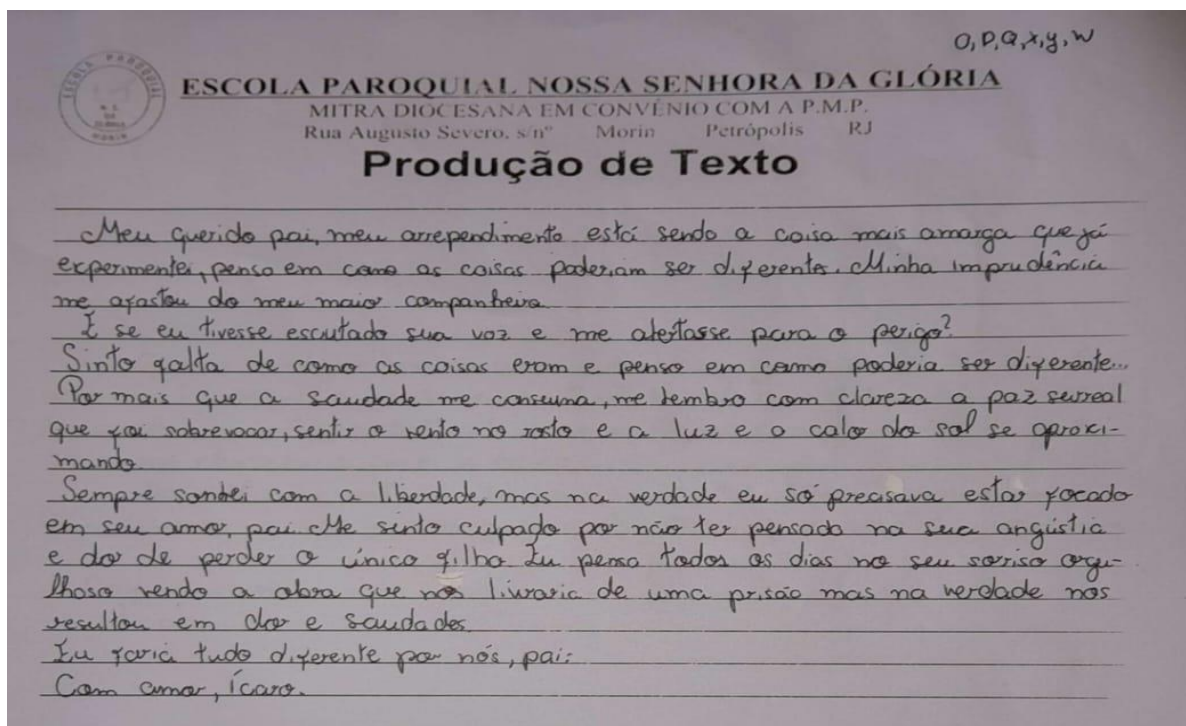 O, P, Q, x, y, W
ESCOLA PAROQUIAL
MORIN
ESCOLA PAROQUIAL NOSSA SENHORA DA GLÓRIA
MITRA DIOCESANA EM CONVÊNIO COM A P.M.P.
Rua Augusto Severo, s/nº Morin Petrópolis RJ
Produção de Texto
Meu querido pai, meu arrependimento está sendo a coisa mais amarga que já
experimentei, penso em como as coisas poderiam ser diferentes. Minha imprudência
me afastou do meu maior companheiro.
E se eu tivesse escutado sua voz e me alertasse para o perigo?
Sinto falta de como as coisas eram e penso em como poderia ser diferente...
Por mais que a saudade me consuma, me lembro com clareza a paz surreal
que foi sobrevoar, sentir o vento no rosto e a luz e o calor do sol se aproxi-
mando.
Sempre sonhei com a liberdade, mas na verdade eu só precisava estar focado
em seu amor, pai. Me sinto culpado por não ter pensado na sua angústia
e dor de perder o único filho. Eu penso todos os dias no seu sorriso orgu-
lhoso vendo a obra que nos livraria de uma prisão mas na verdade nos
resultou em dor e saudades.
Eu faria tudo diferente por nós, pai:
Com amor, Ícaro.